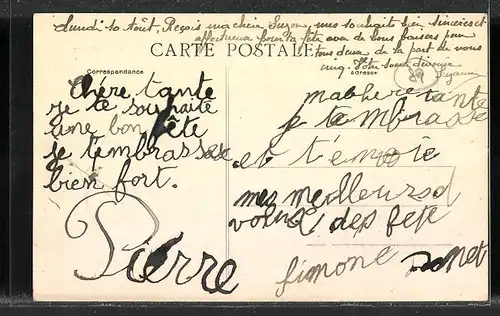 Lundi 10 Août. Reçois ma chère Suzon, mes souhaits bien sincères et
affectueux pour ta fête avec de bons baisers pour
CARTE POSTALE
tous deux de la part de nous
Correspondance
Adresse
Chère tante
je te souhaite
une bon fête
je t'embrasse
bien fort.
Pierre
ma chere tante
je t'embrasse
et t'envoie
mes meilleurs
voeux des fête
Simone